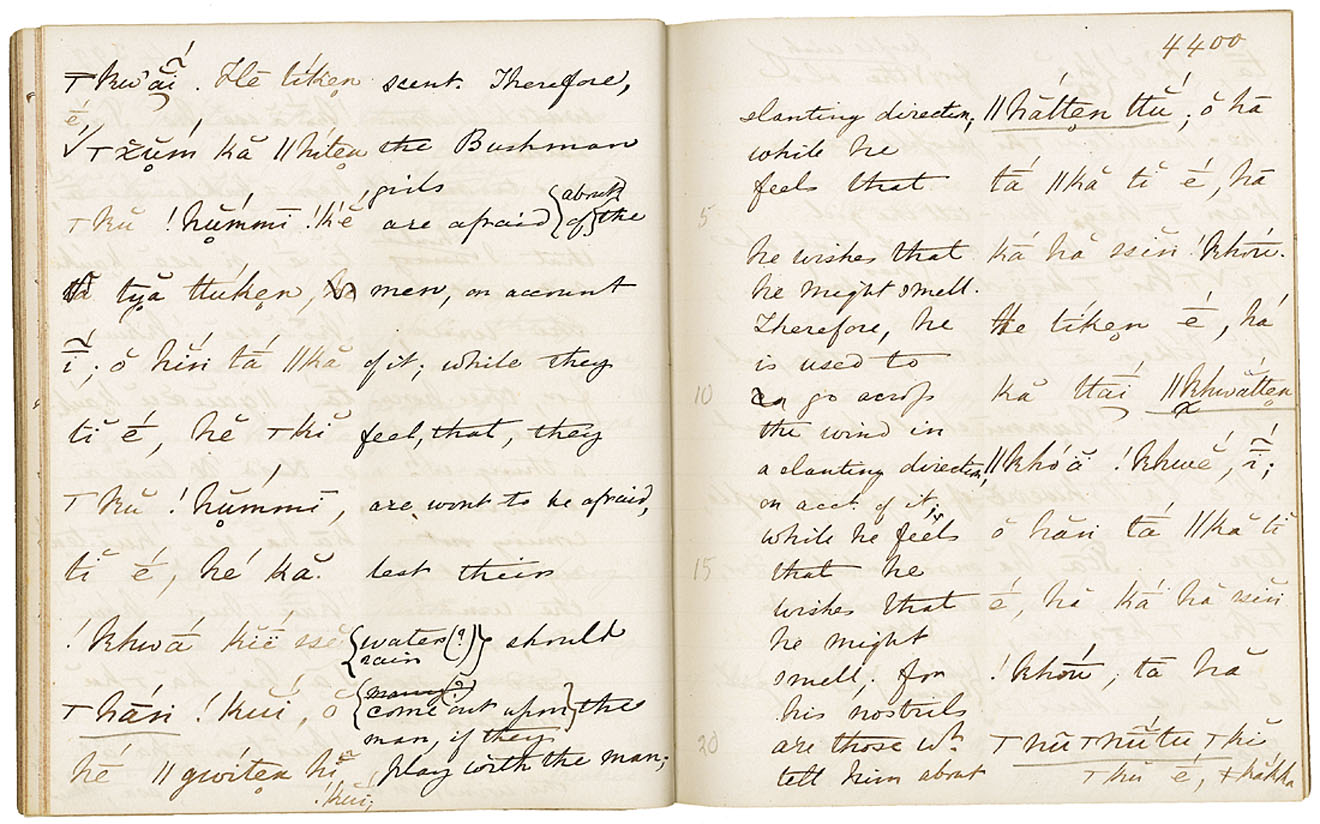 ⊤ku̔ ã́ĭ. Hĕ tíkẹn scent. Therefore,
é,
⊤x̌ụ́m kă ‖hítẹn the Bushman
girls
⊤kŭ !hụ̆́mmī !kĕ́ are afraid {about of} the
tyặ ttúkẹn, men, on account
ī̃́; ŏ hĭ́n tá ‖kă of it; while they
tĭ é, hĕ ⊤kĭ feel, that, they
⊤kŭ !hụ̆́mmī, are wont to be afraid,
tĭ é, hé kă lest their
!khwá kĭĕ ssĕ {water(?) rain} should
⊤hắn !kúĭ, ŏ {come out upon} the
man, if they
hé ‖gwítẹn hĭ play with the man;
!kúĭ;
4400
slanting direction; ‖hắttẹn ttŭ́; ŏ hā
while he
feels that tá ‖kă tĭ é, hā
5
he wishes that ká hă ssĭn !khóu.
he might smell.
Therefore, he He tíkẹn é, há
is used to
10 go across kă ttaí ‖khwăttẹn
the wind in
a slanting direction, ‖khóă !khwé, ī̃́;
on acct. of it,
while he feels ŏ hăn tá ‖kă tĭ
15 that he
wishes that é, hă ká hă ssĭn
he might
smell; for !khóu, tā hă
his nostrils
20 are those wh. ⊤nŭ⊤nŭ́tu ⊤kĭ
tell him about ⊤kŭ é, ⊤kăkka